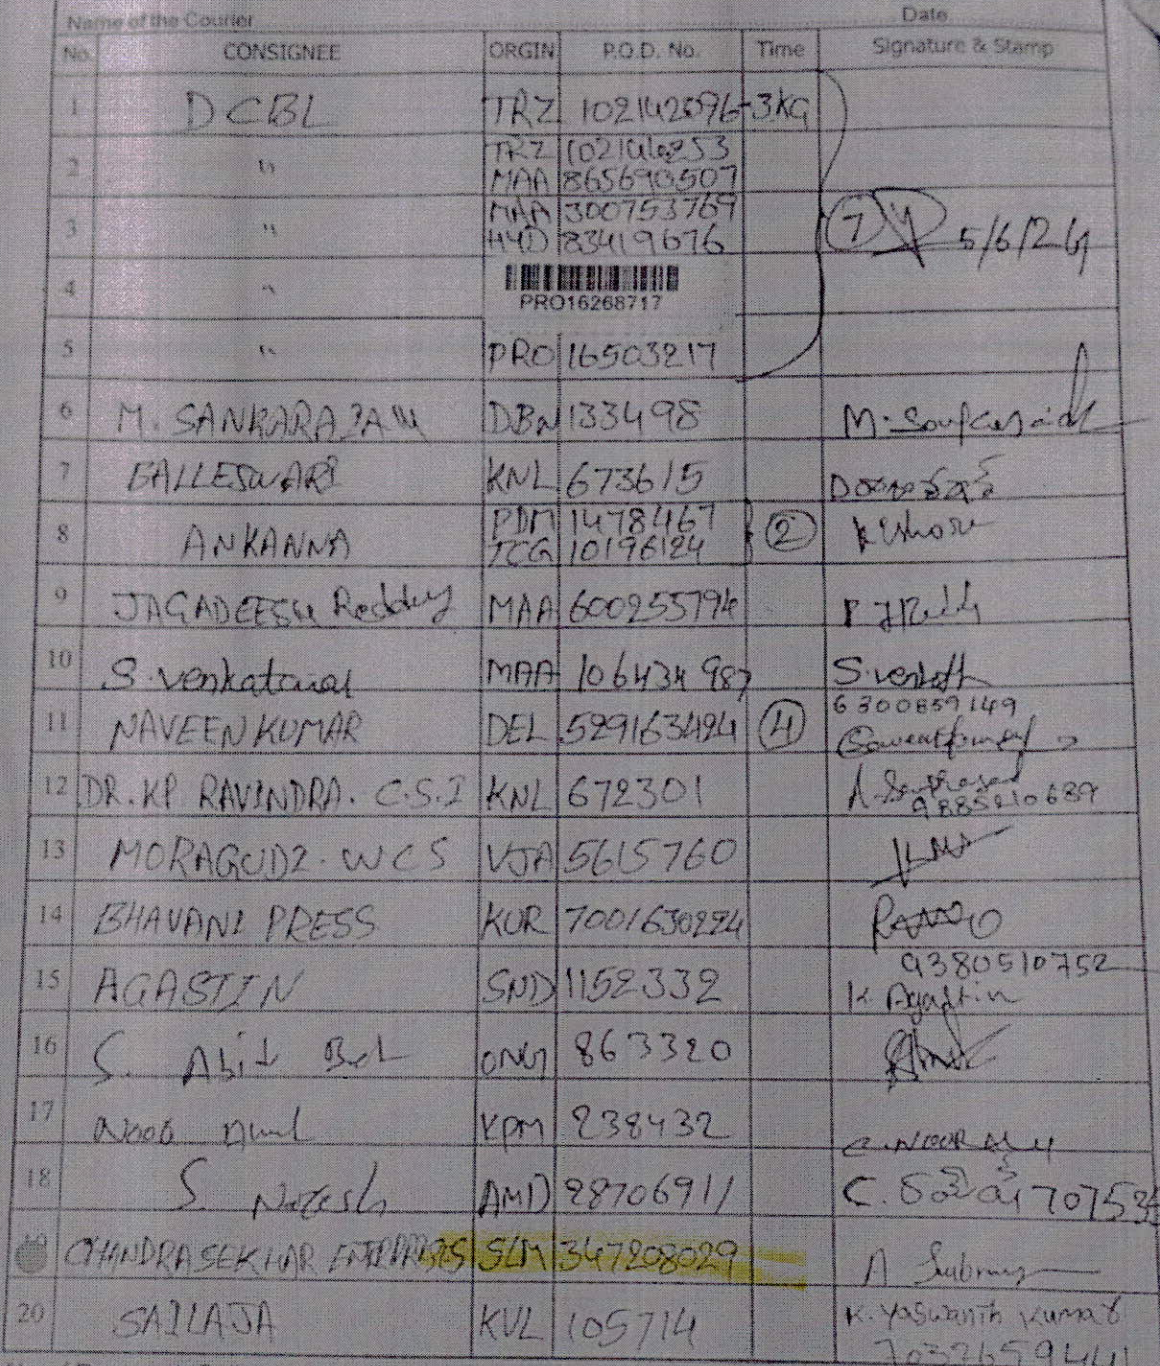 Name of the Courier Date
No. CONSIGNEE ORGIN P.O.D. No. Time Signature & Stamp
1 DCBL TRZ 102142696 - 3KG
2 " TRZ 102146253
MAA 865690507
3 " MAA 300753769
HYD 83419676 7 5/6/24
4 " PRO16268717
5 " PRO 16503217
6 M. SANKARA DBN 133498
7 KNL 673615
8 ANKANNA PDM 1478467
TCG 10196124 2 Kishore
9 JAGADEESH Reddy MAA 600255794 P J Reddy
10 S. venkatamal MAA 106434987 S. venkat
11 NAVEEN KUMAR DEL 529163494 4 6300859149
12 DR. KP. RAVINDRA. C.S.I KNL 672301 9885210689
13 MORAGUDI. WCS VJA 5615760
14 BHAVANI PRESS KUR 7001630224
15 AGASTIN SND 1152332 9380510752
K. Agastin
16 S. ONG 863320
17 KPM 238432
18 S. AMD 28706911 C.
19 CHANDRASEKHAR SLM 347208029
20 SAILAJA KVL 105714 K. Yaswanth Kumar